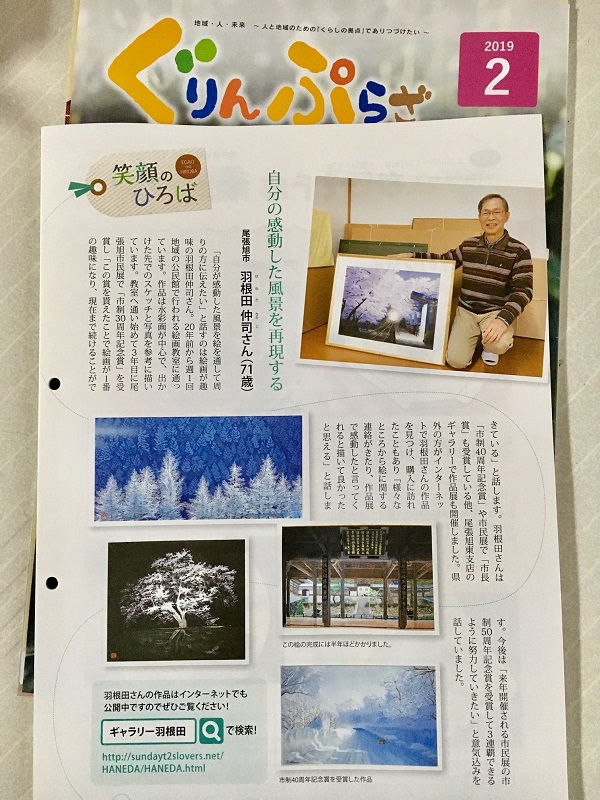 地域・人・未来　～人と地域のための「くらしの拠点」でありつづけたい～
ぐりんぷらざ
2019
2
笑顔の
ひろば
EGAO
HIROBA
自分の感動した風景を再現する
尾張旭市　羽根田 仲司さん（71歳）
「自分が感動した風景を絵を通して周
りの方に伝えたい」と話すのは絵画が趣
味の羽根田仲司さん。20年前から週1回
地域の公民館で行われる絵画教室に通っ
ています。作品は水彩画が中心で、出か
けた先でのスケッチと写真を参考に描い
ています。教室へ通い始めて3年目に尾
張旭市民展で「市制30周年記念賞」を受
賞し「この賞を貰えたことで絵画が1番
の趣味になり、現在まで続けることがで
きている」と話します。羽根田さんは
「市制40周年記念賞」や市民展で「市長
賞」も受賞している他、尾張旭東支店の
ギャラリーで作品展も開催しました。県
外の方がインターネッ
トで羽根田さんの作品
を見つけ、購入に訪れ
たこともあり「様々な
ところから絵に関する
連絡がきたり、作品展
で感動したと言ってく
れると描いて良かった
と思える」と話しま
す。今後は「来年開催される市民展の市
制50周年記念賞を受賞して3連覇できる
ように努力していきたい」と意気込みを
話していました。
この絵の完成には半年ほどかかりました。
市制40周年記念賞を受賞した作品
羽根田さんの作品はインターネットでも
公開中ですのでぜひご覧ください!
ギャラリー羽根田 で検索!
http://sundayt2slovers.net/
HANEDA/HANEDA.html